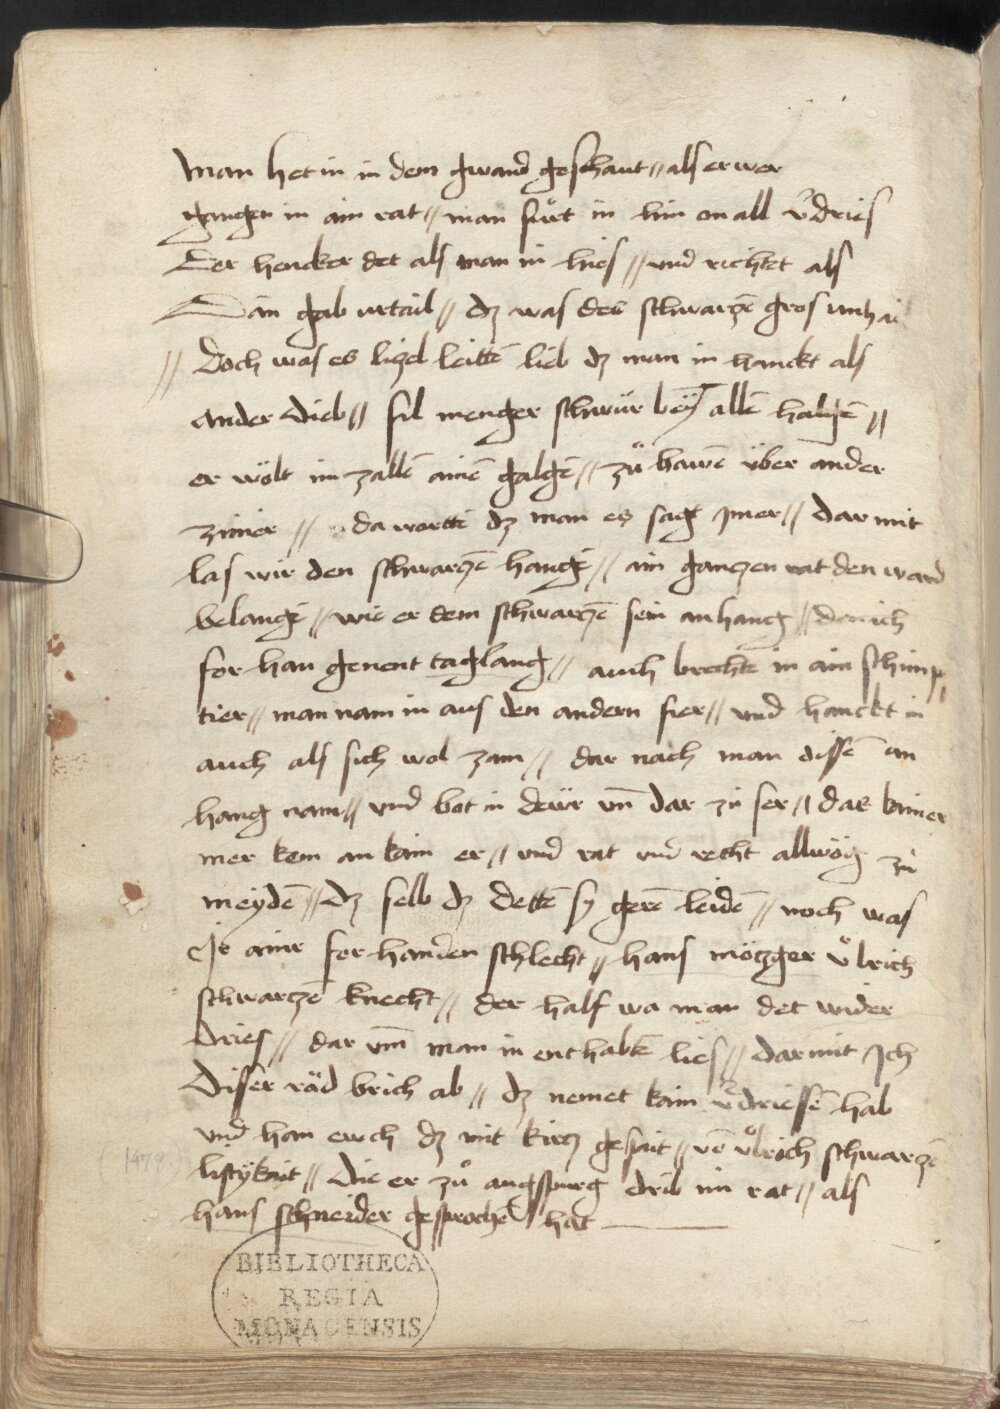 man het in in dem gwand geschaut // als er wer
gangen in ain rat // man fürt in hin on all v̄dries
Der hencker det als man in hies // und richtet als
Dan gab urtail // dz was des schwarzē gros unhai
// Doch was es lizel leittē lieb dz man in hanckt als
ander dieb // fil menger schwür beÿ allē halgē //
er wölt im zallē ainē galgē // zů hawē über ander
zimer // da wortti dz man es sag imer // dar mit
las wir den schwarzē hangē // ain ganczen rat den ward
belangē // wie er dem schwarzē sein anhang // den ich
for han genent taglang // auch brechte in ain schimp
tier // man nam in aus den andern fier // und hanckt in
auch als sich wol zam // dar nach man dissē an
hang nam // und bot in deür vn̄ dar zů ser // das kainer
mer kem an kain er // und rat und recht allwög zů
meydē // dz selb dz dettē sy gerē leidē // noch was
Ir ainr for handen schlecht // hans mötzger ůlrich
schwarczē knecht // der half wa man det wider
dries // dar vm̄ man in enthabtē lies // darmit Ich
Diser räd brich ab // dz nemet kain v̄driessē hab
und han euch dz mit kurcz geseit // vō ůlrich schwarzē
listykait // die er zů augspurg drib im rat // als
hans schneider gesprochē hat
1478
BIBLIOTHECA
REGIA
MONACENSIS